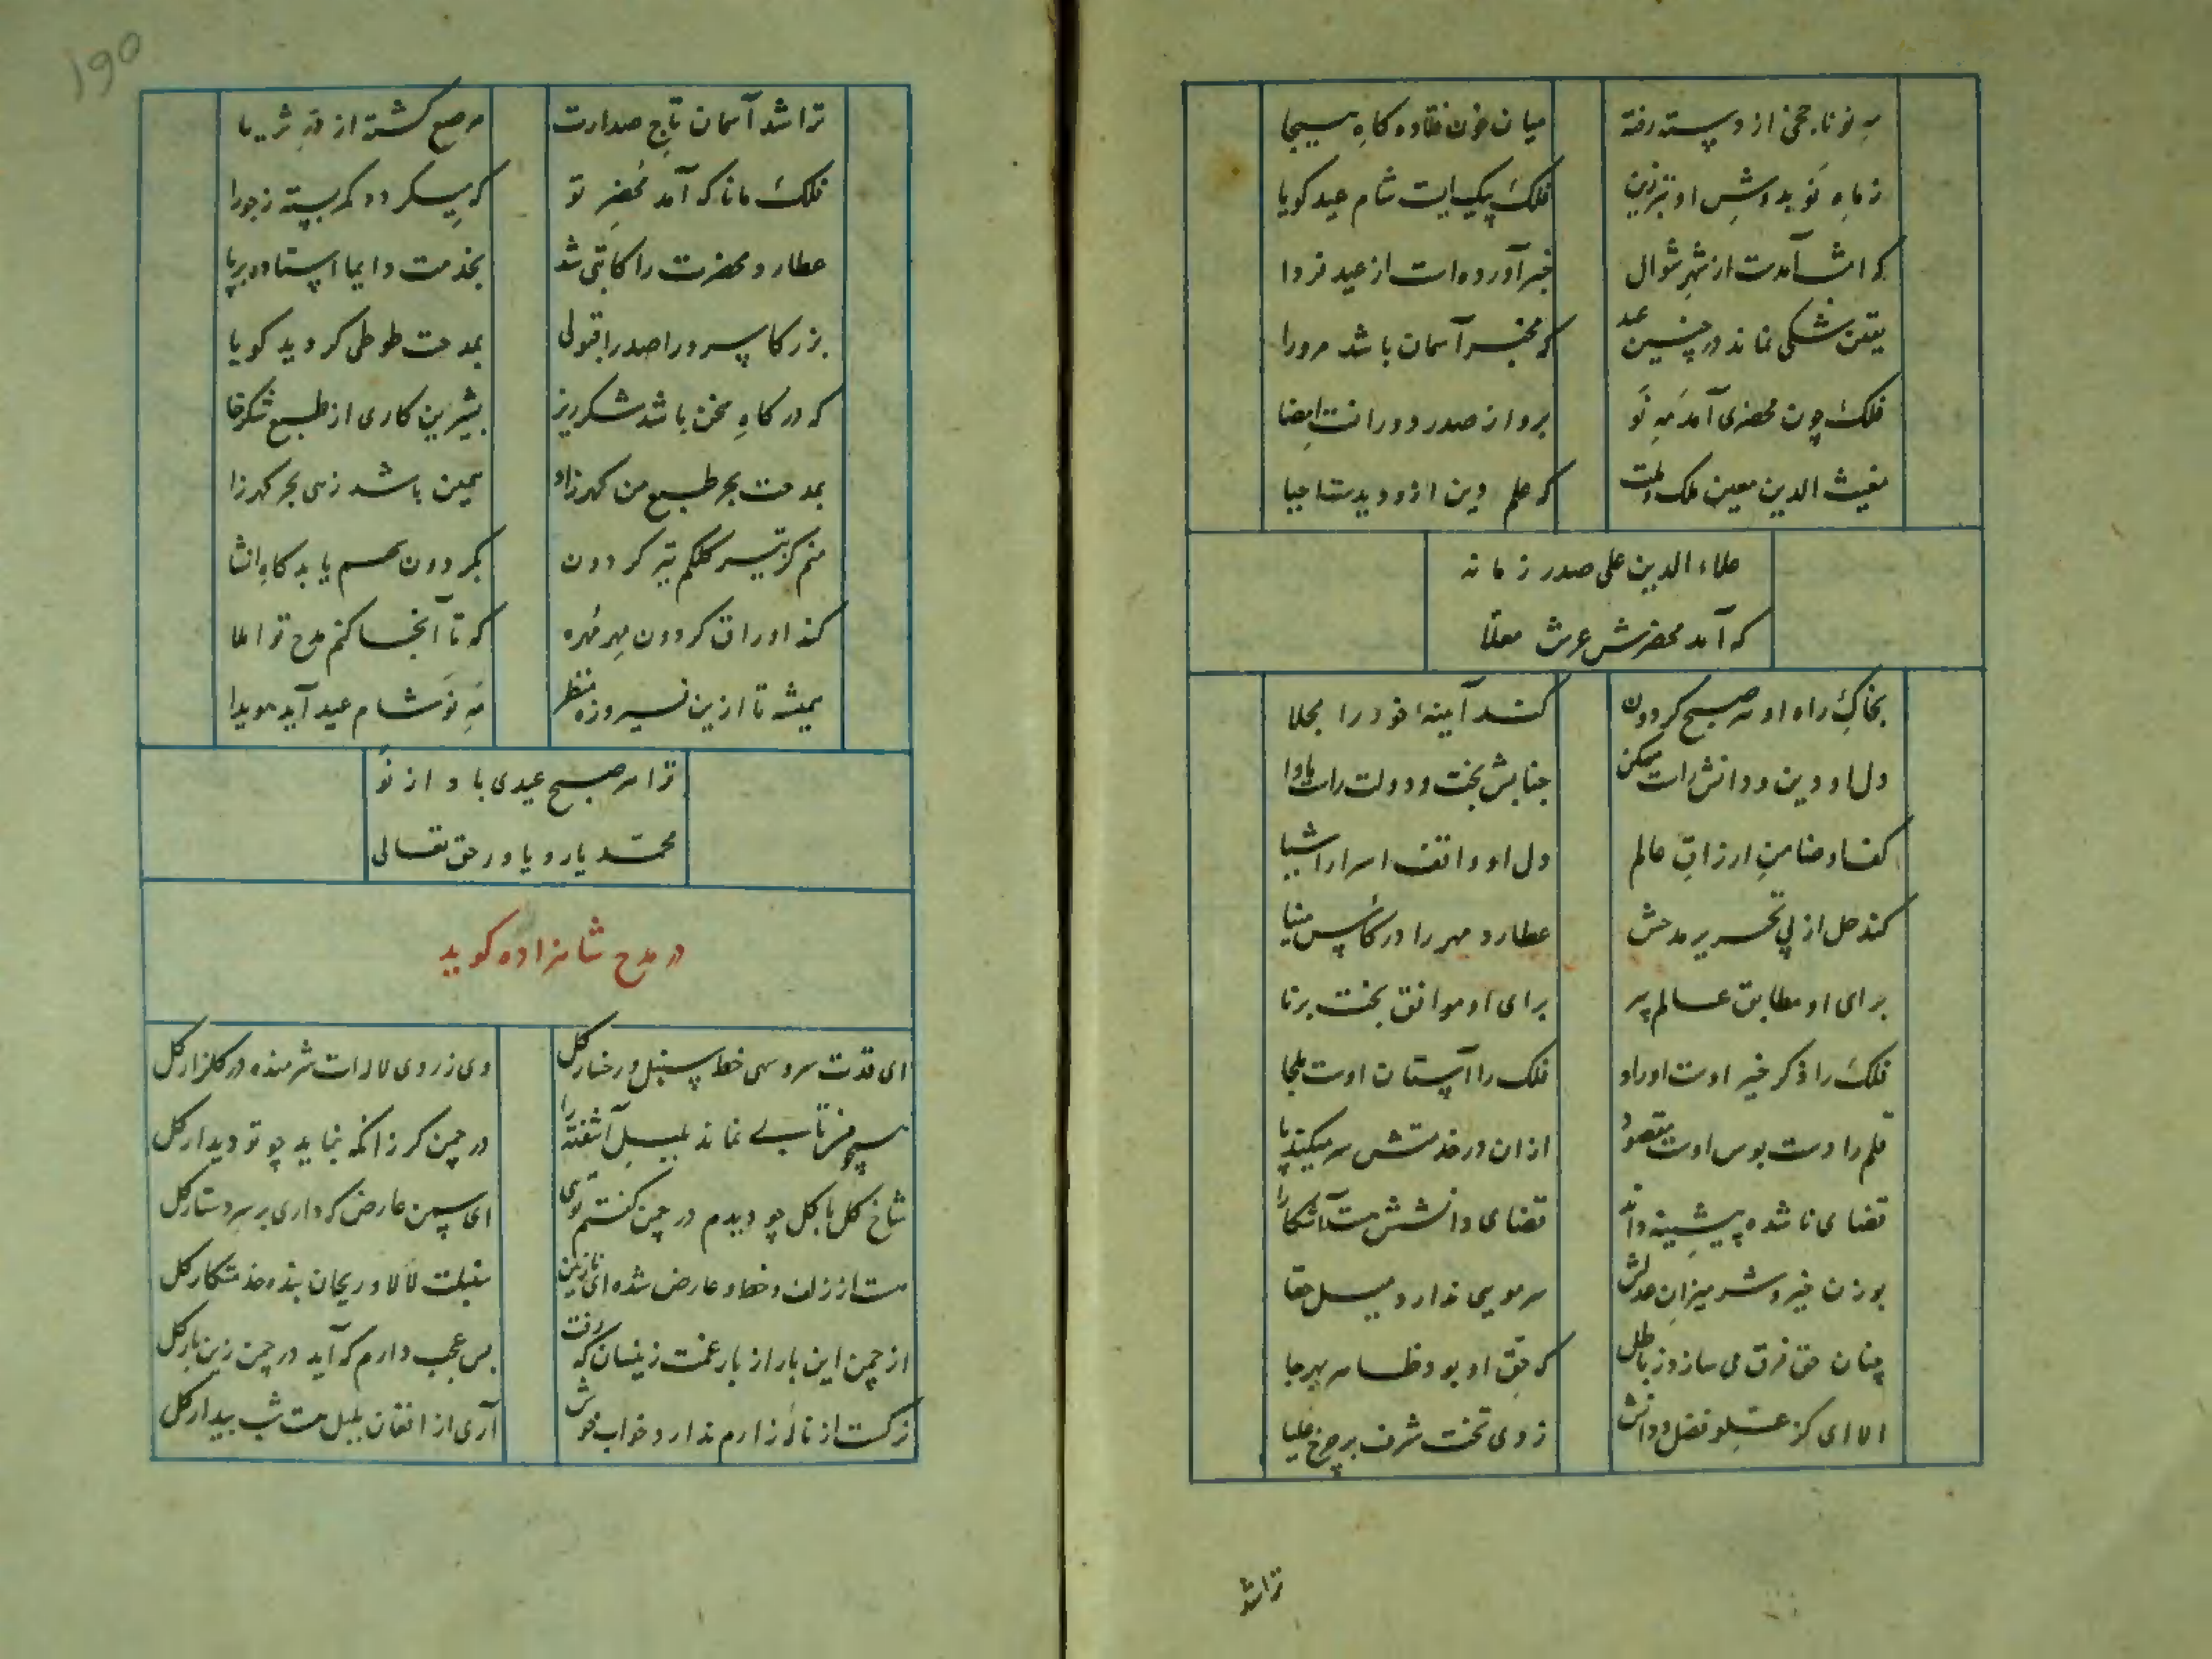 مهِ نو ناجخی از دسته رفته
میان خون فتاده کاهِ هیجا
ز ماهِ نَو بدوشِ او تبرزین
فلکَ پیکیست شام عید کویا
که اش آمدست از شهرِ شوال
خبر آورده است از عید فردا
یقین شکی نماند در چنین عید
که مخبر آسمان باشد مرورا
فلکَ چون محضری آمد مَهِ نَو
برو از صدر دورانست امضا
مغیث الدین معین ملک و ملت
که علم دین ازو دیدست احیا
علاء الدین علی صدر زمانه
که آمد محضرش عرش معلّا
بخاکِ راه او هر صبح کردون
کند آینهٔ خود را مجلا
دل او دین و دانش راست مسکن
جنابش بخت و دولت راست ماوا
کف او ضامنِ ارزاقِ عالم
دل او واقف اسرار اشیا
کند حل از پی تحریر مدحش
عطارد مهر را در کاسِ مینا
برای او مطابق عالم پیر
برای او موافق بخت برنا
فلکَ را ذکر خیر اوست اوراد
فلک را آستان اوست ملجا
قلم را دست بوس اوست مقصود
ازان در خدمتش سر میکند پا
قضای ناشده پیشینه داند
قضای دانشش هست آشکارا
بوزن خیر و شر میزانِ عدلش
سر مویی ندارد میل حقا
چنان حق فرق می سازد ز باطل
که حقِ او بود ظاهر بهر جا
الا ای کز علو فضل و دانش
زدی تخت شرف بر چرخ علیا
تراشد
۱۹۵
تراشد آسمان تاجِ صدارت
مرصع کشته از درِ ثریا
فلک مانا که آمد مَحضرِ تو
که پیکر دو کمر بسته ز جورا
عطارد محضرت را کاتبی شد
بخدمت دایما استاده بر پا
بزرکا سرورا صدرا قبولی
بمدحت طوطی کردید کویا
که در کاهِ سخن باشد شکرریز
بشیرین کاری از طبع شکرخا
بمدحت بحر طبع من کهر زاد
همین باشد زهی بحر کهرزا
منم کز تیر کلکم تیر کردون
بکردون سهم یابد کاهِ انشا
کند اوراق کردون مِهر مُهره
که تا آنجا کنم مدح تو املا
همیشه تا ازین فیروزه منظر
مَهِ نَو شام عید آید هویدا
ترا هر صبح عیدی باد از نَو
محمّد یار و یاور حق تعالی
در مدح شاهزاده کوید
ای قدت سرو سهی خط سنبل و رخسار کل
وی ز روی لاله ات شرمنده در کلزار کل
هیچ فرقتابی نماند بلبلِ آشفته را
در چمن کر زانکه نماید چو تو دیدار کل
شاخ کل با کل چو دیدم در چمن کفتم تویی
ای سمن عارض که داری بر سر دستار کل
هست از زلف و خط و عارض شده ای نازنین
سنبلت لالا و ریحان بنده خدمتکار کل
از چمن این بار از بار غمت زینسان که رفت
بس عجب دارم که آید در چمن زین بار کل
نرکست از نالهٔ زارم ندارد خواب خوش
آری از افغان بلبل هست شب بیدار کل